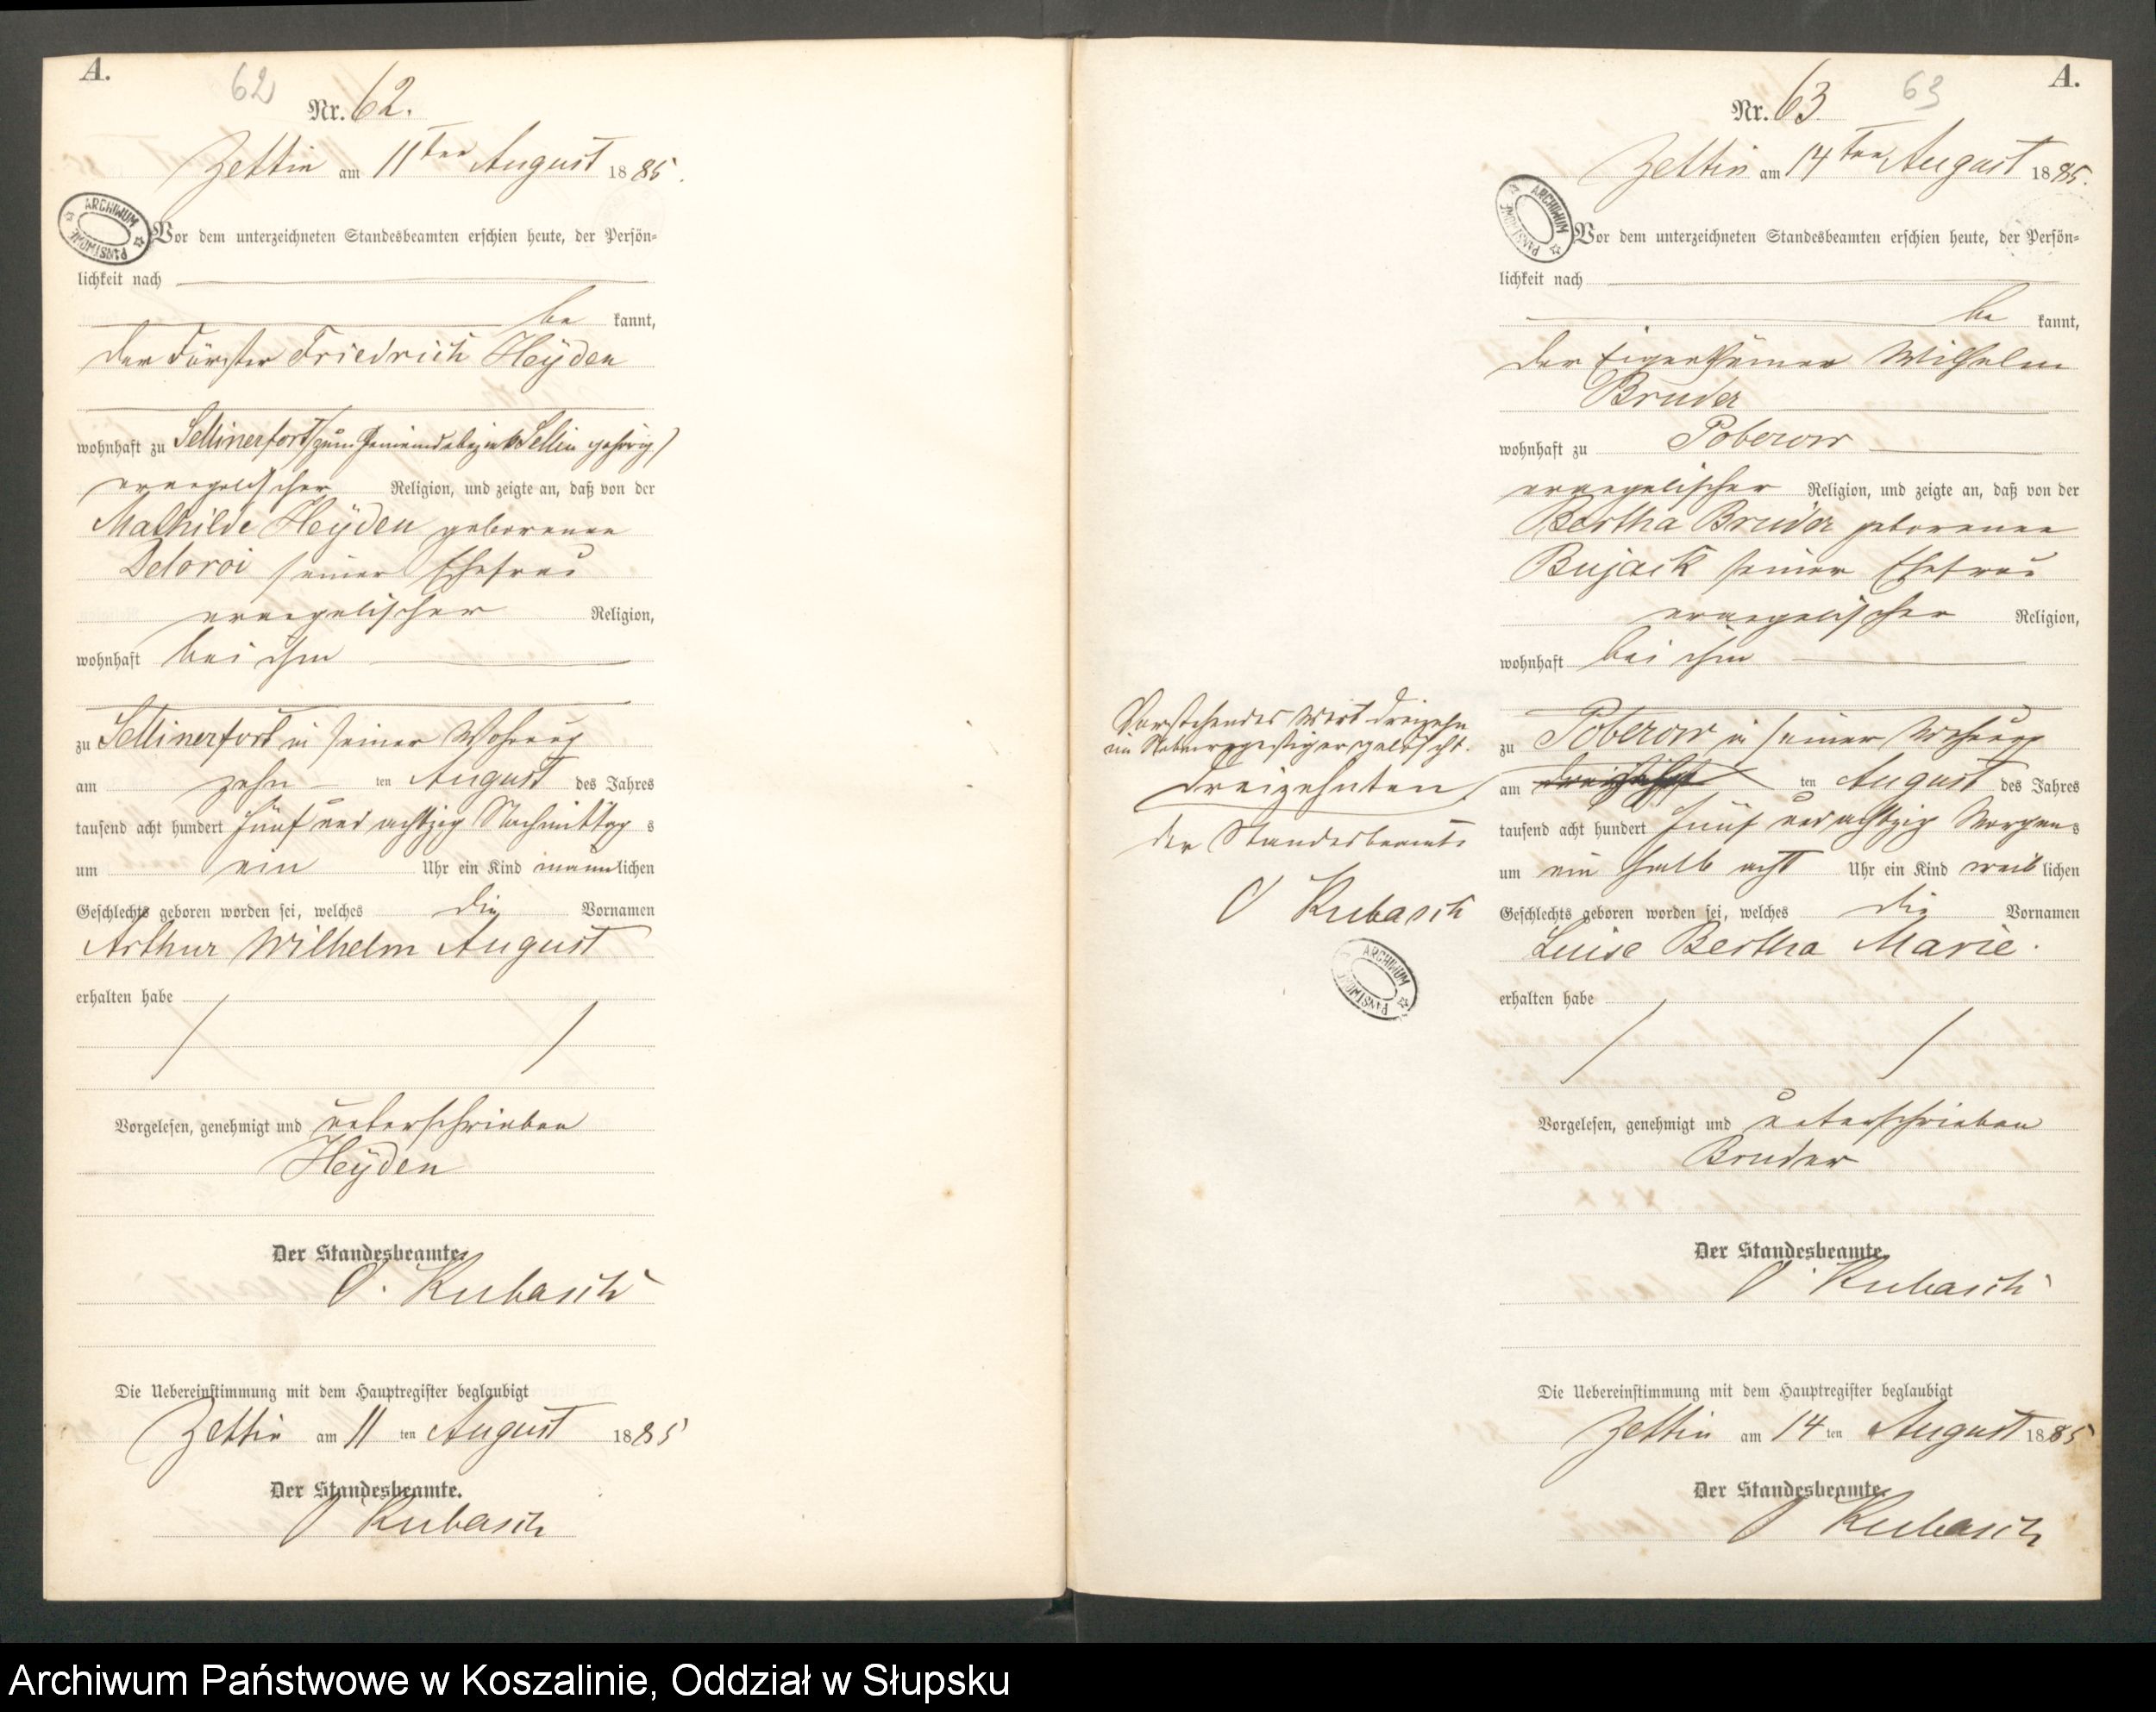 A.
62
Nr. 62.
Zettin am 11ten August 1885.
ARCHIWUM PAŃSTWOWE
Vor dem unterzeichneten Standesbeamten erschien heute, der Persön-
lichkeit nach
be kannt,
der Förster Friedrich Heÿden
wohnhaft zu Sellinerfort (zum Gemeindebezirk Sellin gehörig)
evangelischer Religion, und zeigte an, daß von der
Mathilde Heÿden geborenen
Deloroi seiner Ehefrau
evangelischer Religion,
wohnhaft bei ihm
zu Sellinerfort in seiner Wohnung
am zehn ten August des Jahres
tausend acht hundert fünf und achtzig Nachmittag s
um ein Uhr ein Kind männlichen
Geschlechts geboren worden sei, welches die Vornamen
Arthur Wilhelm August
erhalten habe
Vorgelesen, genehmigt und unterschrieben
Heÿden
Der Standesbeamte.
O. Kubasch
Die Uebereinstimmung mit dem Hauptregister beglaubigt
Zettin am 11 ten August 1885
Der Standesbeamte.
O Kubasch
A.
63
Nr. 63
Zettin am 14ten August 1885.
ARCHIWUM PAŃSTWOWE
Vor dem unterzeichneten Standesbeamten erschien heute, der Persön-
lichkeit nach
be kannt,
der Eigenthümer Wilhelm
Bruder
wohnhaft zu Poberow
evangelischer Religion, und zeigte an, daß von der
Bertha Bruder geborenen
Bujack seiner Ehefrau
evangelischer Religion,
wohnhaft bei ihm
zu Poberow in seiner Wohnung
am ten August des Jahres
tausend acht hundert fünf und achtzig Morgens
um ein halb acht Uhr ein Kind weiblichen
Geschlechts geboren worden sei, welches die Vornamen
Luise Bertha Marie.
erhalten habe
Vorgelesen, genehmigt und unterschrieben
Bruder
Der Standesbeamte.
O Kubasch
Die Uebereinstimmung mit dem Hauptregister beglaubigt
Zettin am 14 ten August 1885
Der Standesbeamte.
O Kubasch
Vorstehendes Wort dreizehn
im Nebenregister gelöscht.
dreizehnten
der Standesbeamte
O Kubasch
ARCHIWUM PAŃSTWOWE
Archiwum Państwowe w Koszalinie, Oddział w Słupsku